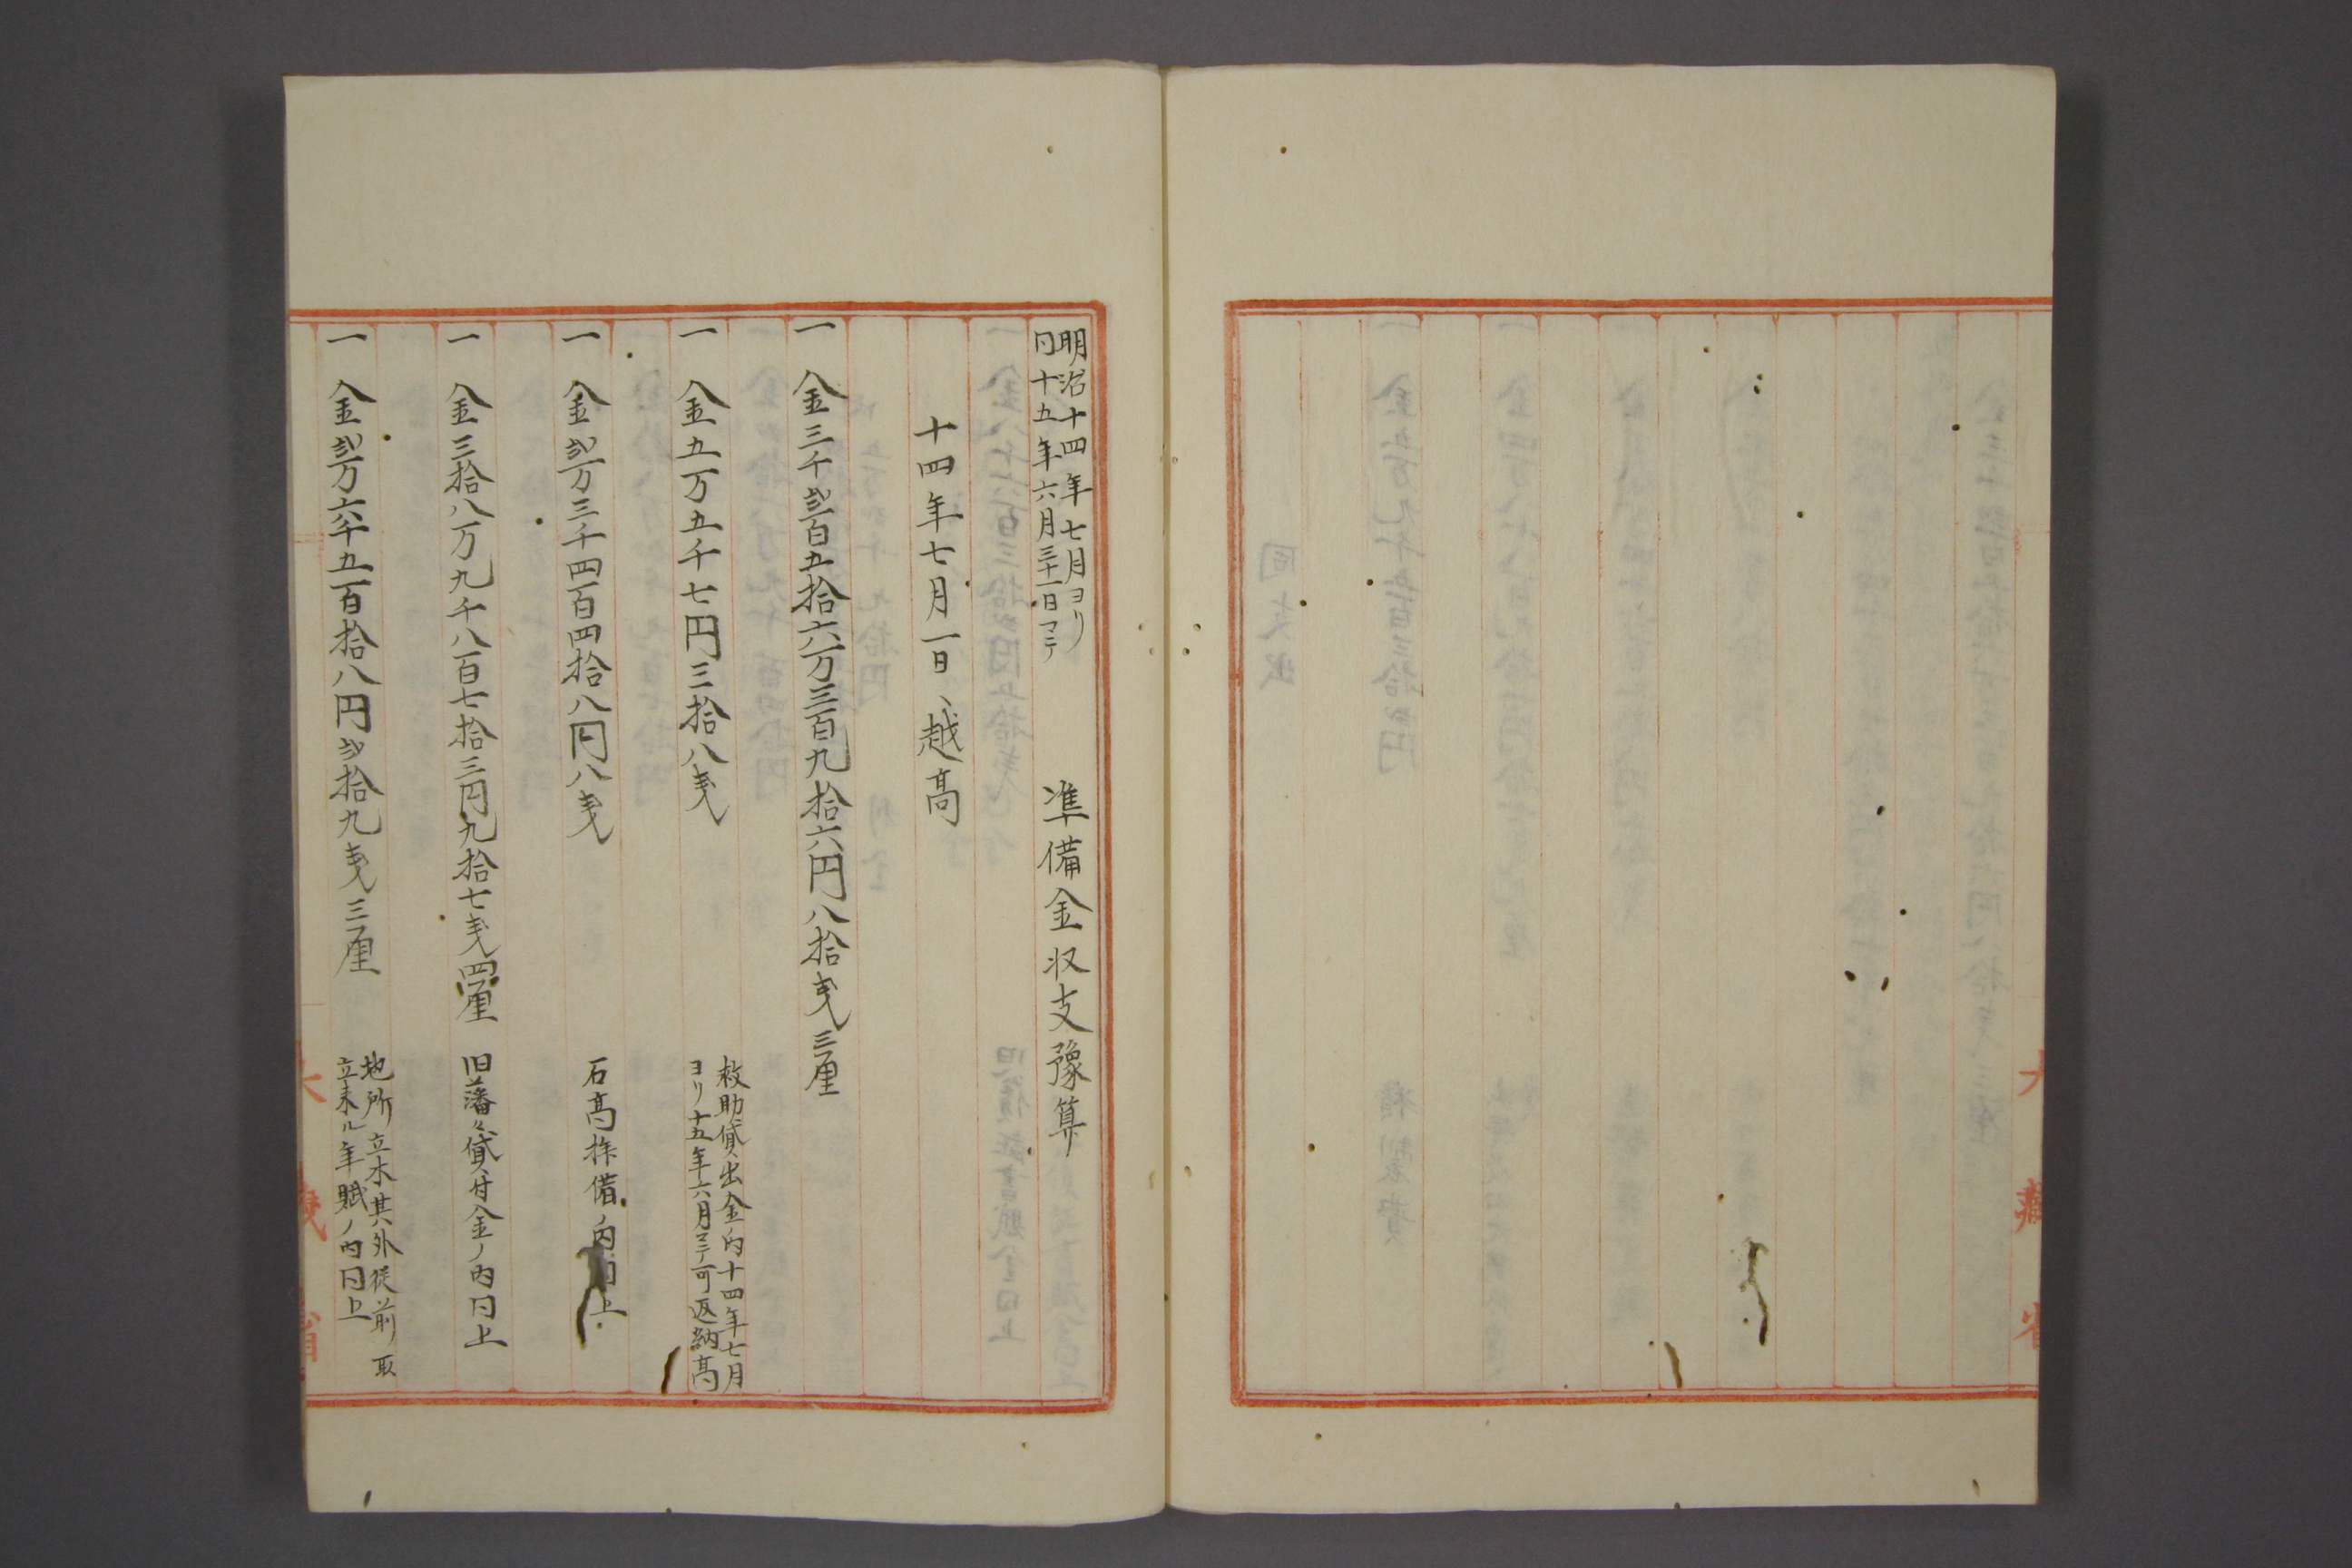 明治十四年七月ヨリ
同十五年六月三十日マテ
準備金収支豫算
十四年七月一日ヘ越高
一 金三千弐百五拾六万三百九拾六円八拾戋三厘
一 金五万五千七円三拾八戋
救助貸出金ノ内十四年七月
ヨリ十五年六月マテ可返納高
一 金弐万三千四百四拾八円八戋
石高拝借ノ内同上
一 金三拾八万九千八百七拾三円九拾七戋四厘
旧藩々貸付金ノ内同上
一 金弐万六千五百拾八円弐拾九戋三厘
地所立木其外従前取
立来ル年賦ノ内同上
大藏省